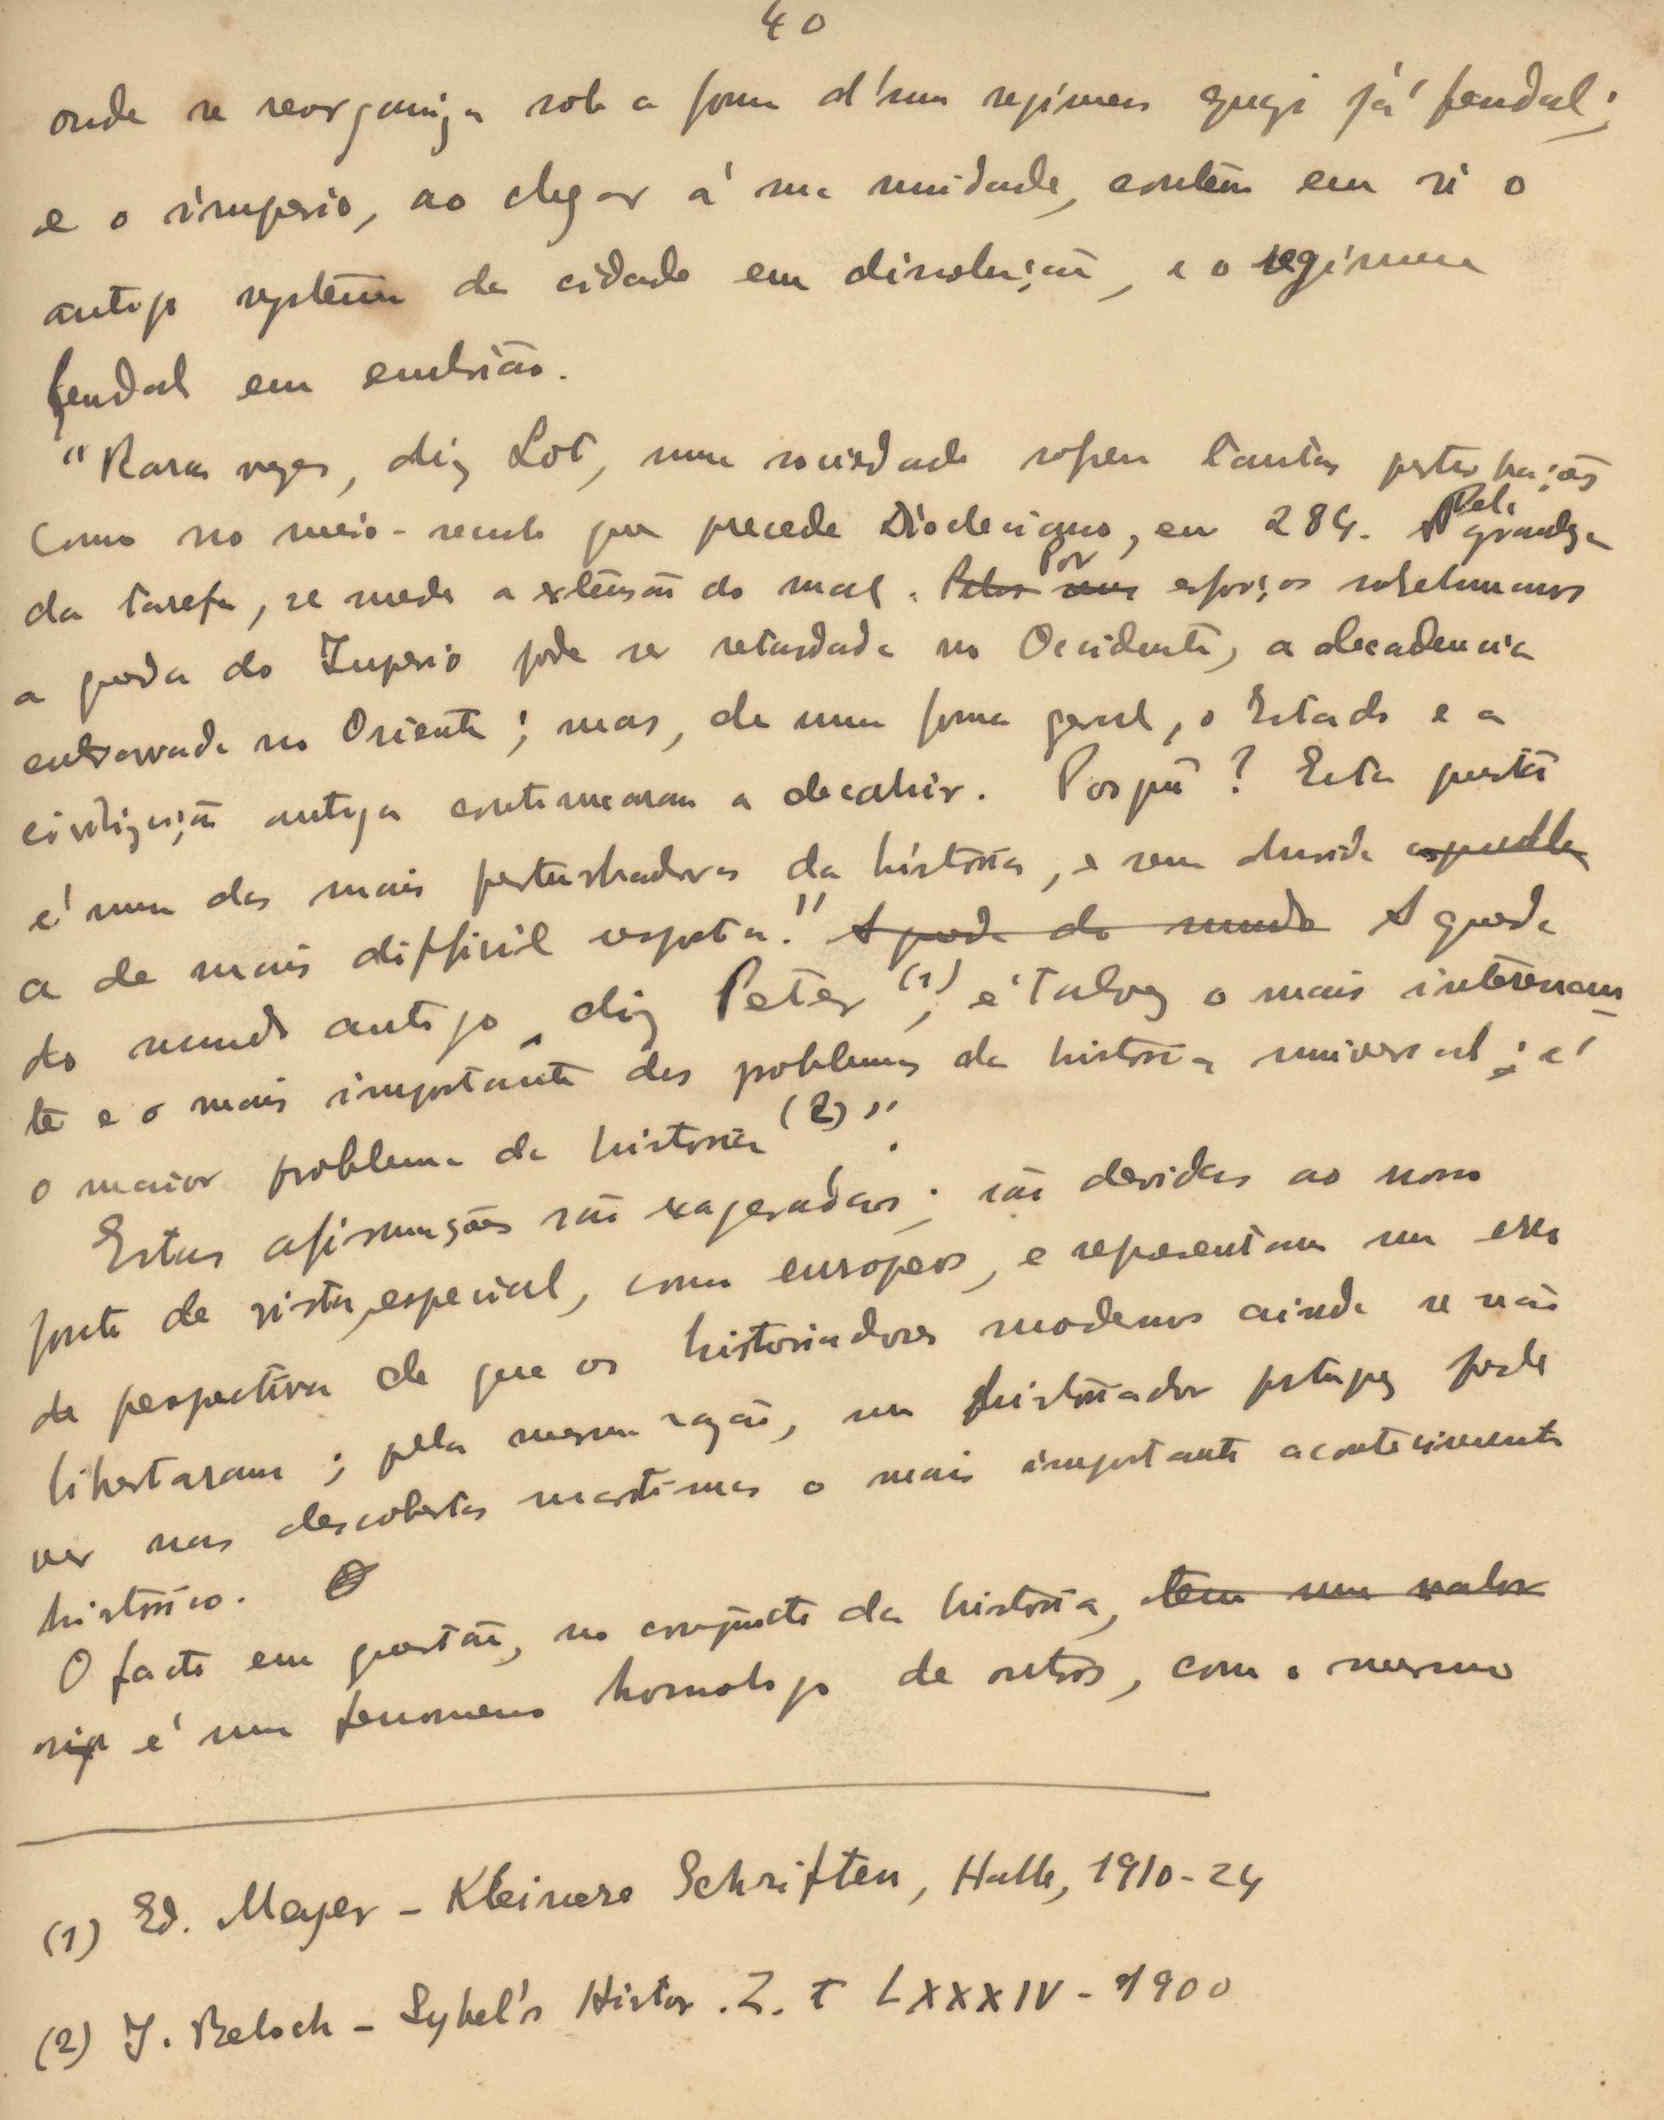 40
onde se reorganiza sob a forma d'um regimen quazi já feudal;
e o imperio, ao chegar á sua unidade, contêm em si o
antigo systema da cidade em dissolução, e o regimen
feudal em embrião.
"Raras vezes, diz Lot, uma sociedade sofreu tantas perturbações
como no meio-seculo que precede Diocleciano, em 284. A Pela grandeza
da tarefa, se mede a extensão do mal. Pelos seus Por esforços sobrehumanos
a queda do Imperio pode ser retardada no Occidente, a decadencia
entravada no Oriente; mas, de uma forma geral, o Estado e a
civilização antiga continuaram a decahir. Porquê? Esta questão
é uma das mais perturbadoras da história, e sem duvida aquella
a de mais difficil resposta." A queda do mundo A queda
do mundo antigo, diz Peter (1), é talvez o mais interessan
te e o mais importante dos problemas da história universal; é
o maior problema da historia (2)".
Estas afirmações são exageradas; são devidas ao nosso
ponto de vista especial, como europeos, e representam um erro
de perspectiva de que os historiadores modernos ainda se não
libertaram; pela mesma razão, um historiador portuguez pode
ver nas descobertas maritimas o mais importante acontecimento
histórico. O
O facto em questão, no conjuncto da história, tem um valor
é um fenomeno homologo de outros, com o mesmo
(1) Ed. Meyer - Kleinere Schriften, Halle, 1910-24
(2) J. Beloch - Sybel's Histor. Z. t LXXXIV - 1900